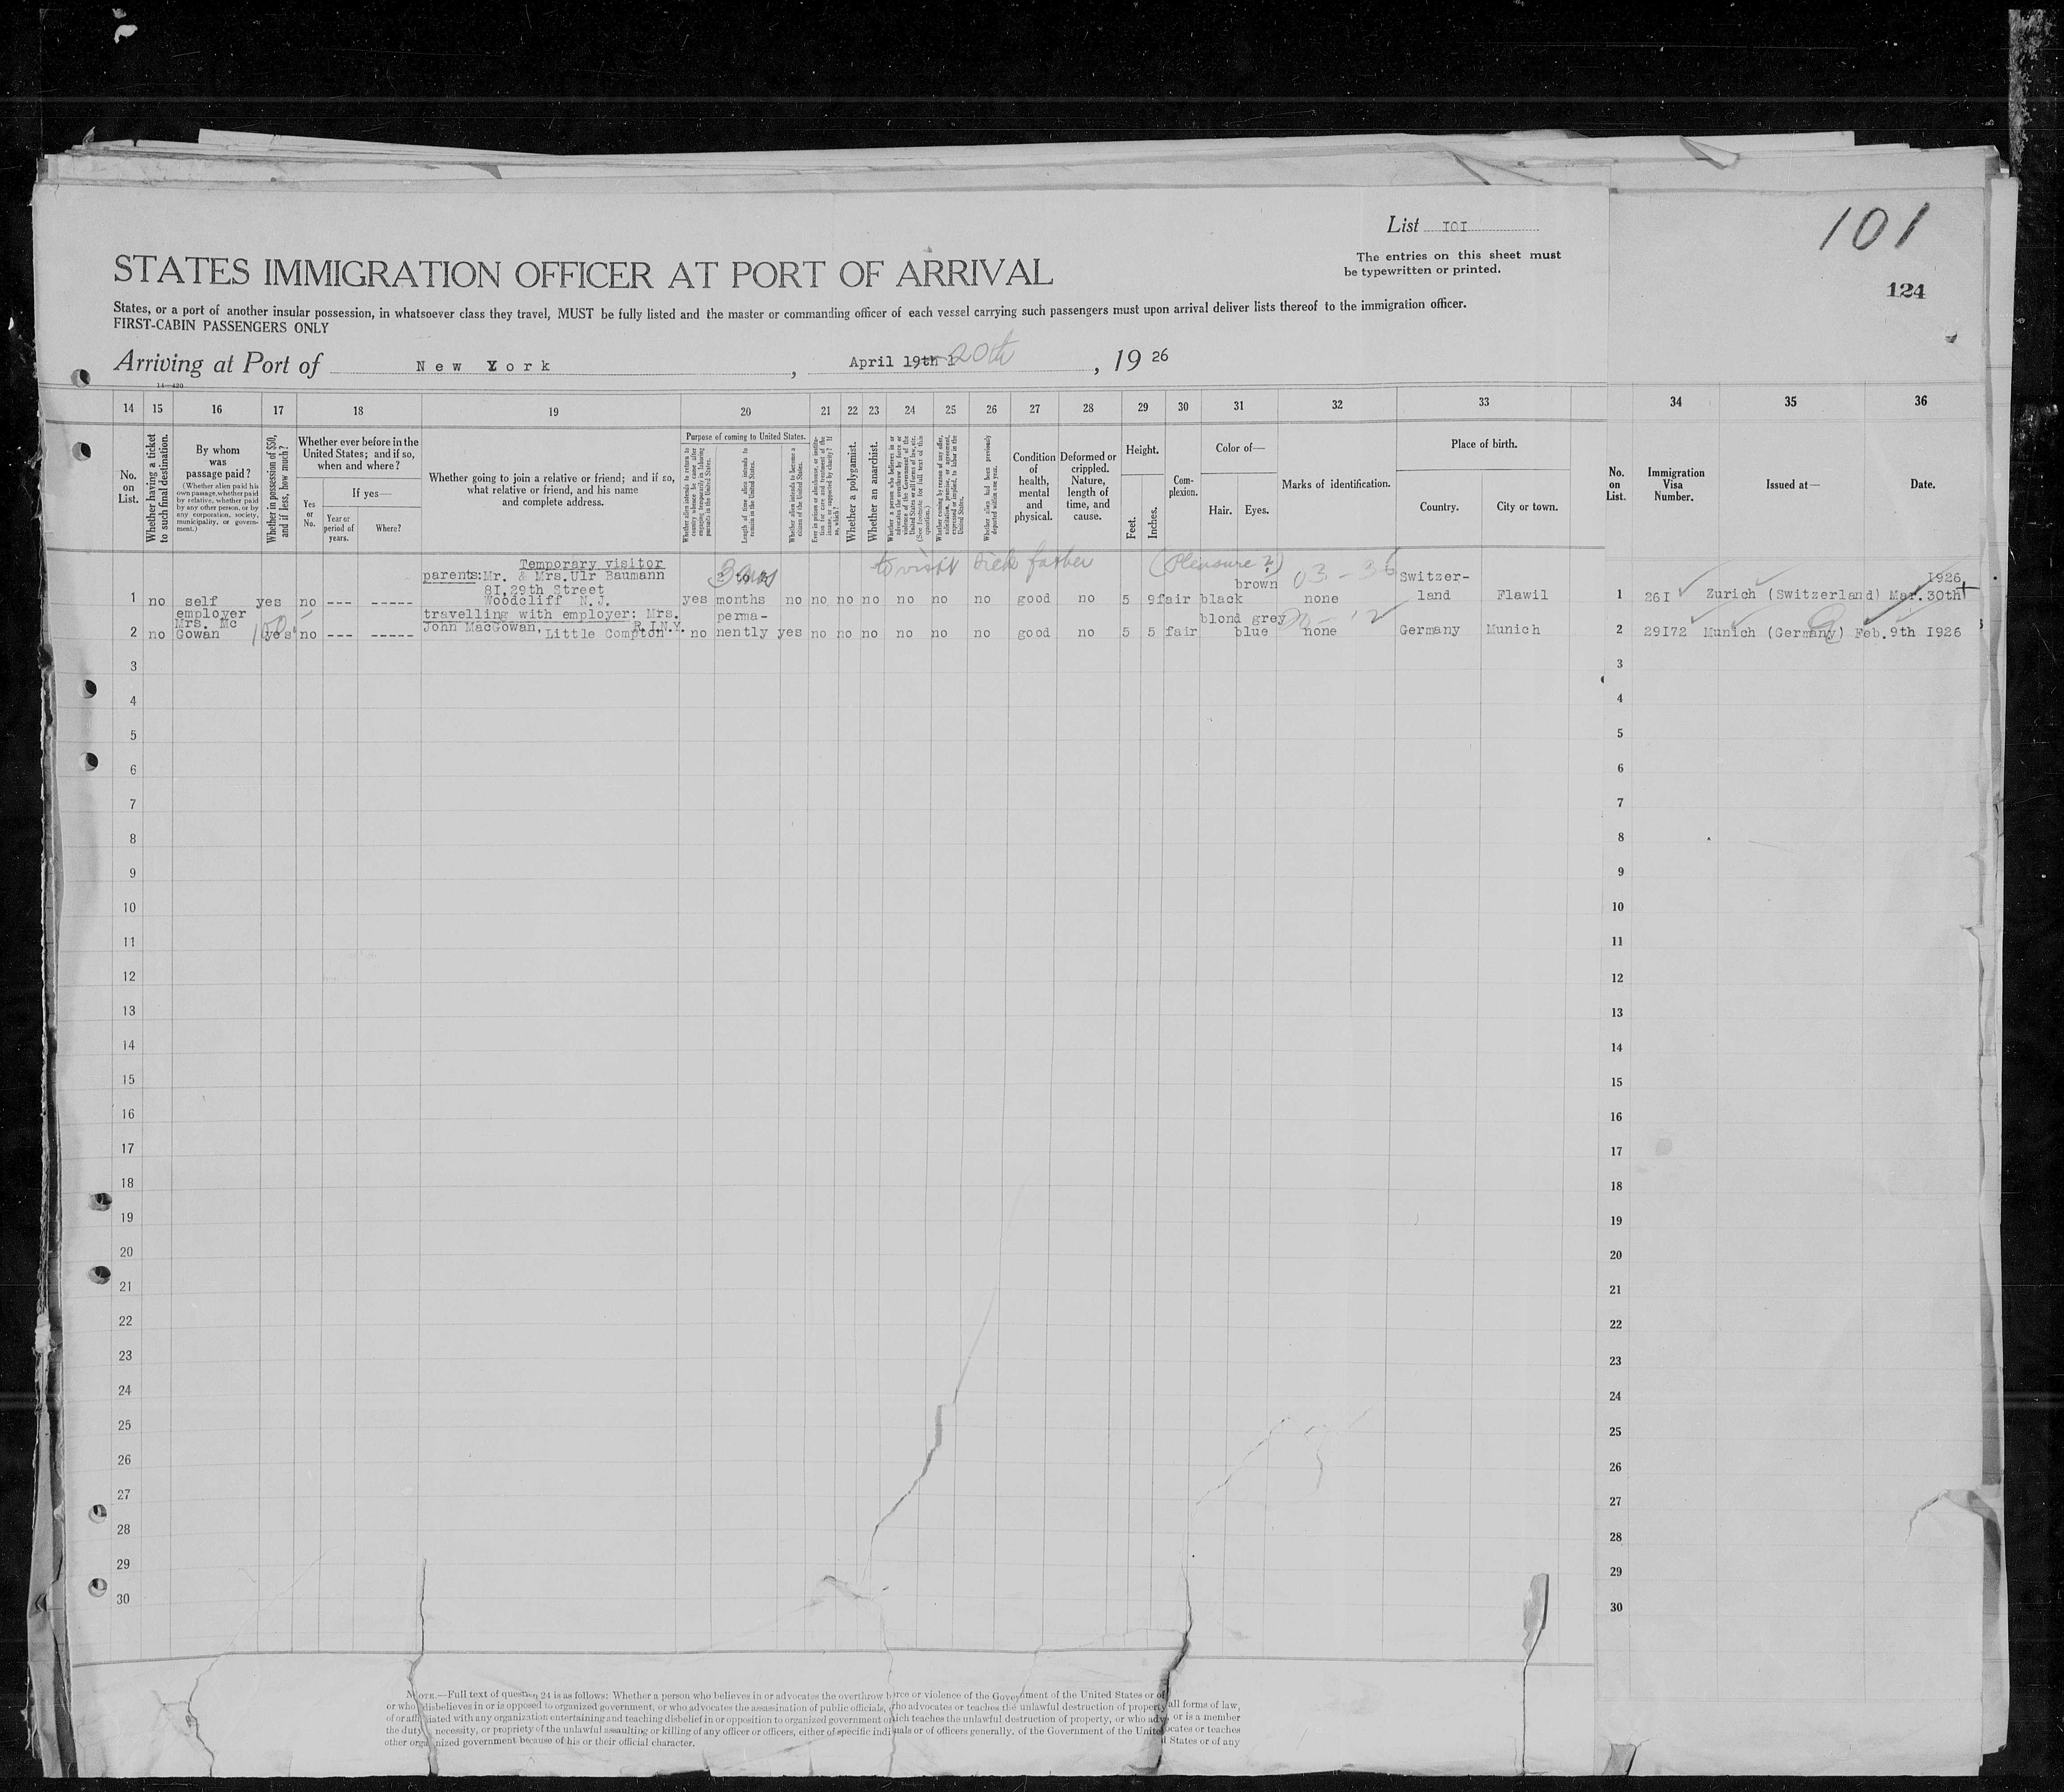 List IOI
101
The entries on this sheet must
be typewritten or printed.
124
STATES IMMIGRATION OFFICER AT PORT OF ARRIVAL
States, or a port of another insular possession, in whatsoever class they travel, MUST be fully listed and the master or commanding officer of each vessel carrying such passengers must upon arrival deliver lists thereof to the immigration officer.
FIRST-CABIN PASSENGERS ONLY
Arriving at Port of New York, April 19th 20th, 1926
14—420
14 15 16 17 18 19 20 21 22 23 24 25 26 27 28 29 30 31 32 33 34 35 36
No. on List.
Whether having a ticket to such final destination.
By whom was passage paid?
(Whether alien paid his own passage, whether paid by relative, whether paid by any other person, or by any corporation, society, municipality, or government.)
Whether in possession of $50, and if less, how much?
Whether ever before in the United States; and if so, when and where?
Yes or No.
If yes—
Year or period of years.
Where?
Whether going to join a relative or friend; and if so, what relative or friend, and his name and complete address.
Purpose of coming to United States.
Whether alien intends to return to country whence he came after engaging temporarily in laboring pursuits in the United States.
Length of time alien intends to remain in the United States.
Whether alien intends to become a citizen of the United States.
Ever in prison or almshouse, or institution for care and treatment of the insane, or supported by charity? If so, which?
Whether a polygamist.
Whether an anarchist.
Whether a person who believes in or advocates the overthrow by force or violence of the Government of the United States or all forms of law, etc. (See footnote for full text of this question.)
Whether coming by reason of any offer, solicitation, promise, or agreement, expressed or implied, to labor in the United States.
Whether alien had been previously deported within one year.
Condition of health, mental and physical.
Deformed or crippled. Nature, length of time, and cause.
Height.
Feet.
Inches.
Complexion.
Color of—
Hair.
Eyes.
Marks of identification.
Place of birth.
Country.
City or town.
No. on List.
Immigration Visa Number.
Issued at—
Date.
Temporary visitor 3 mos to visit sick father (Pleasure?)
parents: Mr. & Mrs. Ulr Baumann brown 03-36 Switzer- 1926
8I, 29th Street
1 no self yes no --- ----- Woodcliff N.J. yes months no no no no no no no good no 5 9 fair black none land Flawil 1 26I Zurich (Switzerland) Mar. 30th
employer travelling with employer: Mrs. perma- blond grey
Mrs. Mc John MacGowan, R.I.N.Y.
2 no Gowan yes no --- ----- Little Compton no nently yes no no no no no no good no 5 5 fair blue none Germany Munich 2 29I72 Munich (Germany) Feb. 9th I926
3 3
4 4
5 5
6 6
7 7
8 8
9 9
10 10
11 11
12 12
13 13
14 14
15 15
16 16
17 17
18 18
19 19
20 20
21 21
22 22
23 23
24 24
25 25
26 26
27 27
28 28
29 29
30 30
NOTE.—Full text of question 24 is as follows: Whether a person who believes in or advocates the overthrow by force or violence of the Government of the United States or of all forms of law,
or who disbelieves in or is opposed to organized government, or who advocates the assassination of public officials, who advocates or teaches the unlawful destruction of property, or is a member
of or affiliated with any organization entertaining and teaching disbelief in or opposition to organized government which teaches the unlawful destruction of property, or who advocates or teaches
the duty, necessity, or propriety of the unlawful assaulting or killing of any officer or officers, either of specific individuals or of officers generally, of the Government of the United States or of any
other organized government because of his or their official character.